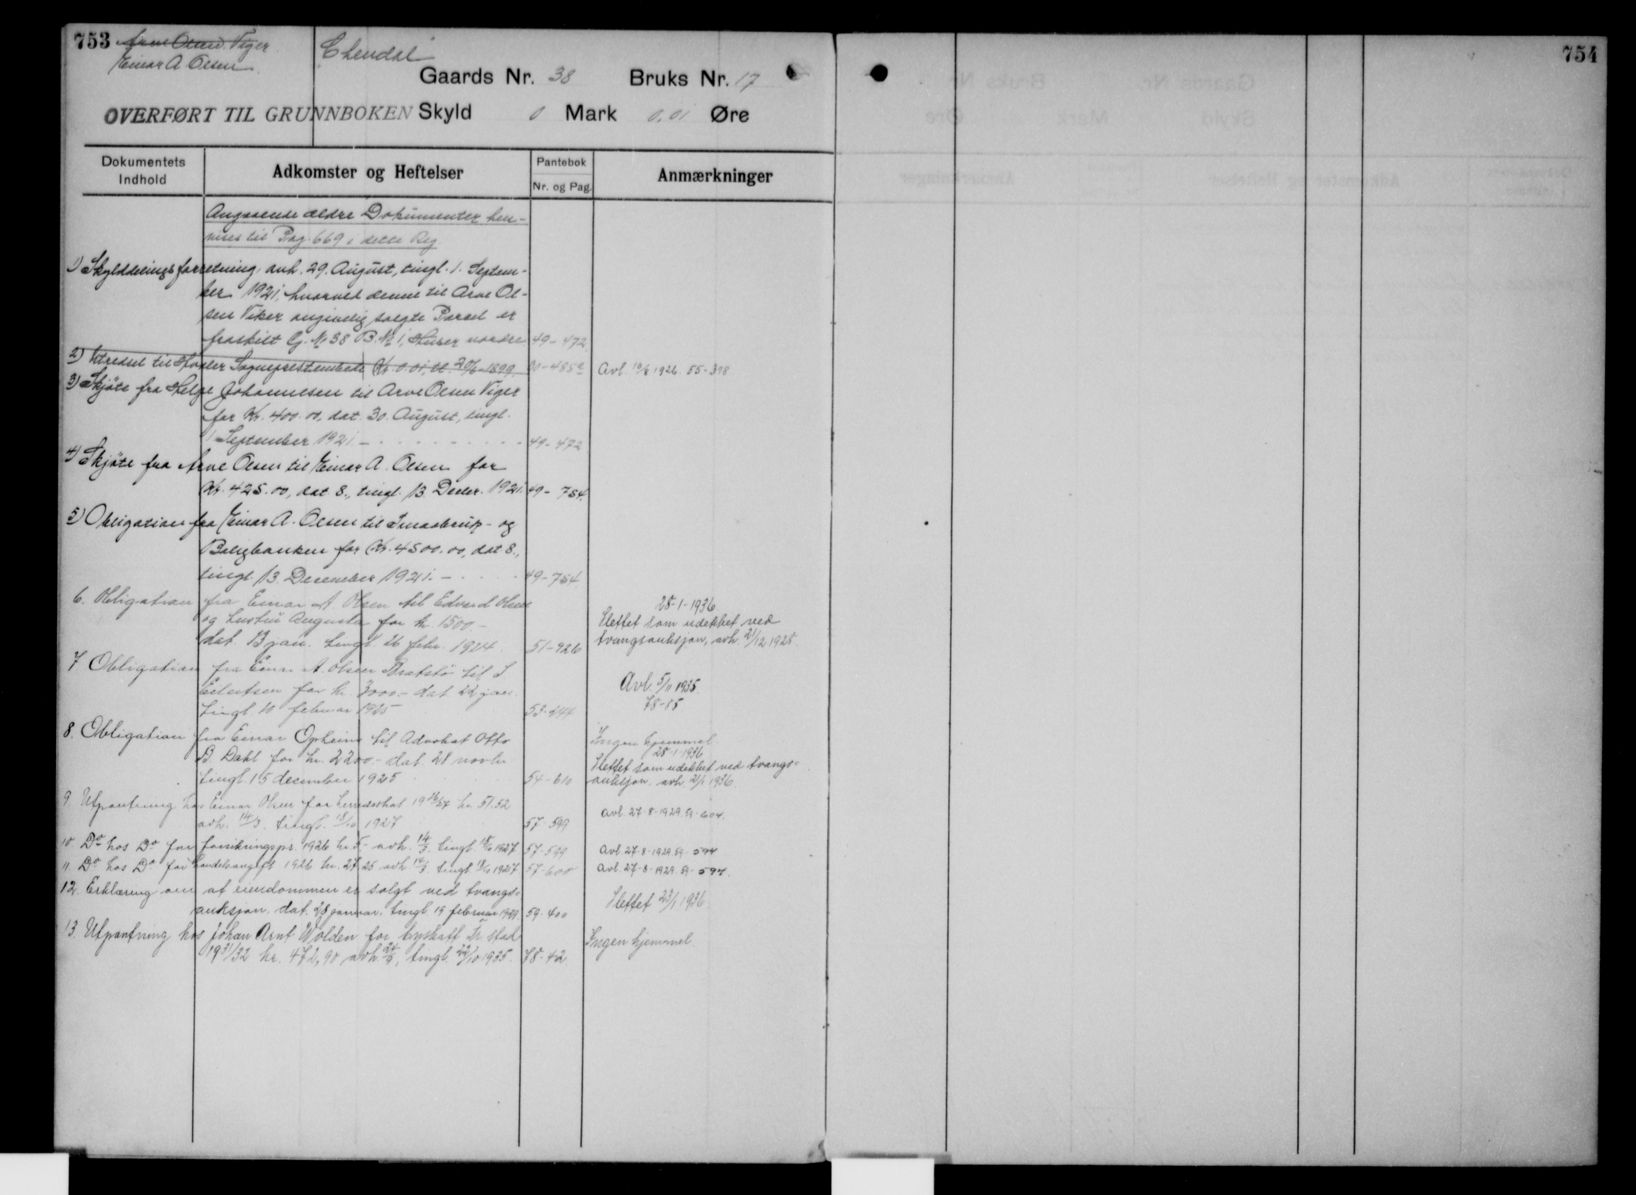 753 Arne Olsen Viger
Einar A Olsen
Elendal
Gaards Nr. 38 Bruks Nr. 17
OVERFØRT TIL GRUNNBOKEN Skyld 0 Mark 0,01 Øre
Dokumentets Indhold
Adkomster og Heftelser
Pantebok
Nr. og Pag.
Anmærkninger
Angaaende ældre Dokumenter hen-
vises til Pag. 669 i dette Reg
1) Skylddelingsforretning, avh. 29. August, tingl. 1. Septem-
ber 1921, hvorved denne til Arve Ol-
sen Viker angivelig solgte Parsel er
fraskilt G. No 38 B. No 1, nordre 49-472
2) til Sogneprestembede Kr 0.01, 1899, Avl. 1926. 55-398
3) Skjöte fra Helge Johannesen til Arve Olsen Viger
for Kr. 400.00, dat. 30. August, tingl.
1 September 1921 - 49-472
4) Skjöte fra Arve Olsen til Einar A. Olsen for
Kr. 425.00, dat 8., tingl. 13 Decbr. 1921 49-754.
5) Obligation fra Einar A. Olsen til Smaabruk- og
Boligbanken for Kr. 4500.00, dat 8.,
tingl 13 December 1921. - 49-754
6. Obligation fra Einar A Olsen til Edvard Olsen
og Augusta for kr 1500-
dat. 13 jan. tingl. 16 febr. 1924. 51-926
28-1-1936
Slettet som udekket ved
tvangsauksjon, avh. 21/12 1928.
7 Obligation fra Einar A. Olsen til S
for kr. 3000.- dat 22 jan.
tingl. 10 februar 1925 53-444
Avl. 5/11 1935.
78-85
8. Obligation fra Einar Opheim til Advokat Otto
B. Dahl for kr. 2200.- dat 28 novbr
tingl 15 december 1925 54-610
Ingen hjemmel
28-1-1936
Slettet som udekket ved tvangs-
auksjon. avh 1936.
9. Utpantning hos Einar Olsen for kr. 51.52
avh. 14/3. tingl. 18/10 1927 57-599
avl. 27-8-1929. 59-604.
10 Do hos Do for forsikringspr. 1926 kr. 5,- avh. 14/3 tingl. 18/10 1927 57-599
avl 27-8-1929 59-594
11 Do hos Do for 1926 kr. 27.25 avh 14/3 tingl 18/10 1927 57-600
avl. 27-8-1929. 59-594.
12. Erklæring om at eiendommen er solgt ved tvangs-
auksjon. dat. 28 januar. tingl. 19 februar 1929 59-400
Slettet 23/1 1936.
13. Utpantning hos Johan Arnt Wolden for byskatt Tr.
1931/32 kr. 472,90 avh. tingl. 22/10 1935. 78-42
Ingen hjemmel.
754